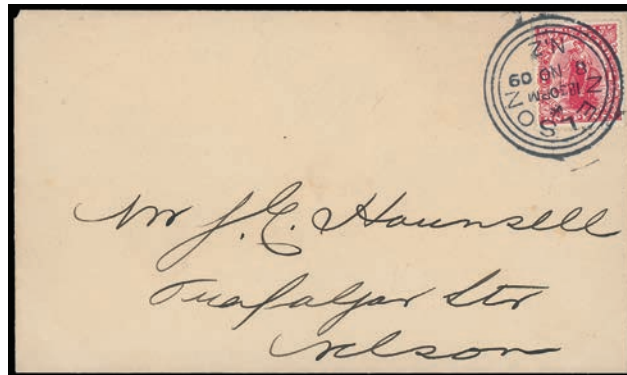 NELSON
N.Z
8 NO 09
1830PM
Mr J. C. Hounsell
Trafalgar Str
Nelson